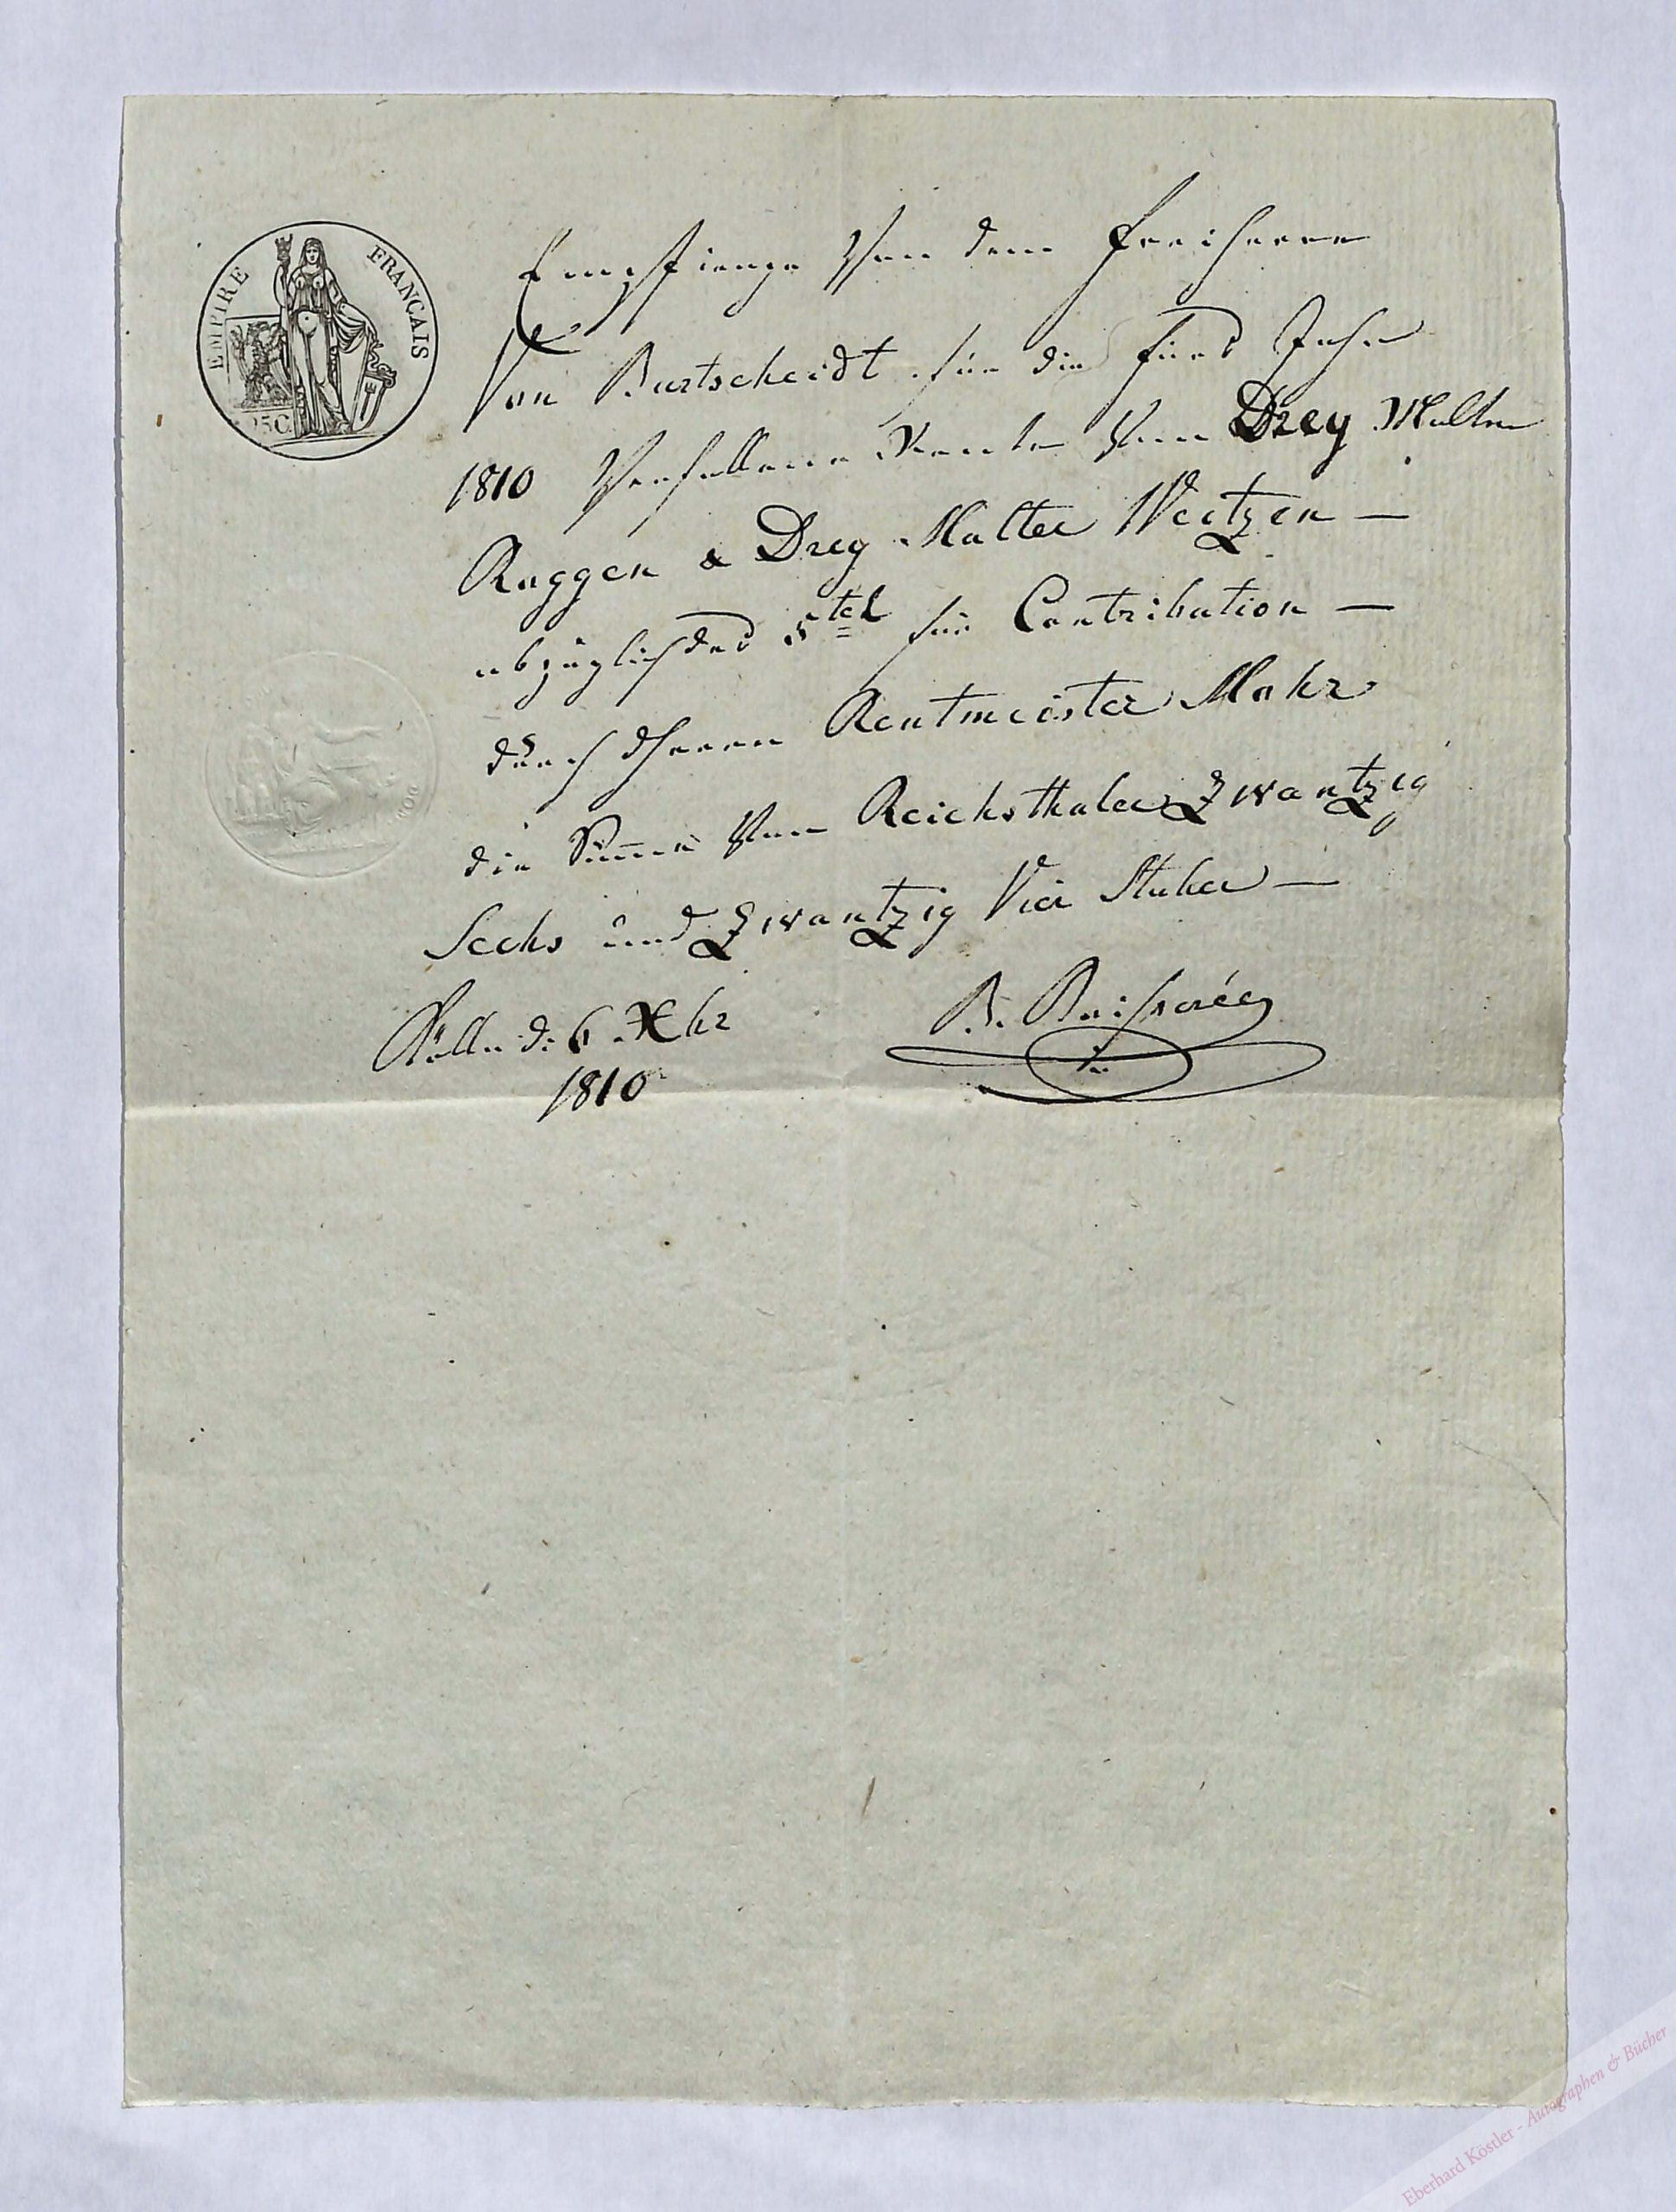 EMPIRE FRANÇAIS
25C.
Empfienge Von dem Freiherrn
Von Burtscheidt für die fürs Jahr
1810 Verfallene Rente Von Drey Malter
Roggen & Drey Malter Weitzen —
abzüglich des 5tel für Contribution —
durch Herrn Rentmeister Mohr
die Summa Von Reichsthaler Zwantzig
Sechs und Zwantzig Vier Stuber —
Kölln d. 6 Xbr
1810
B. Boisserée
Eberhard Köstler - Autographen & Bücher